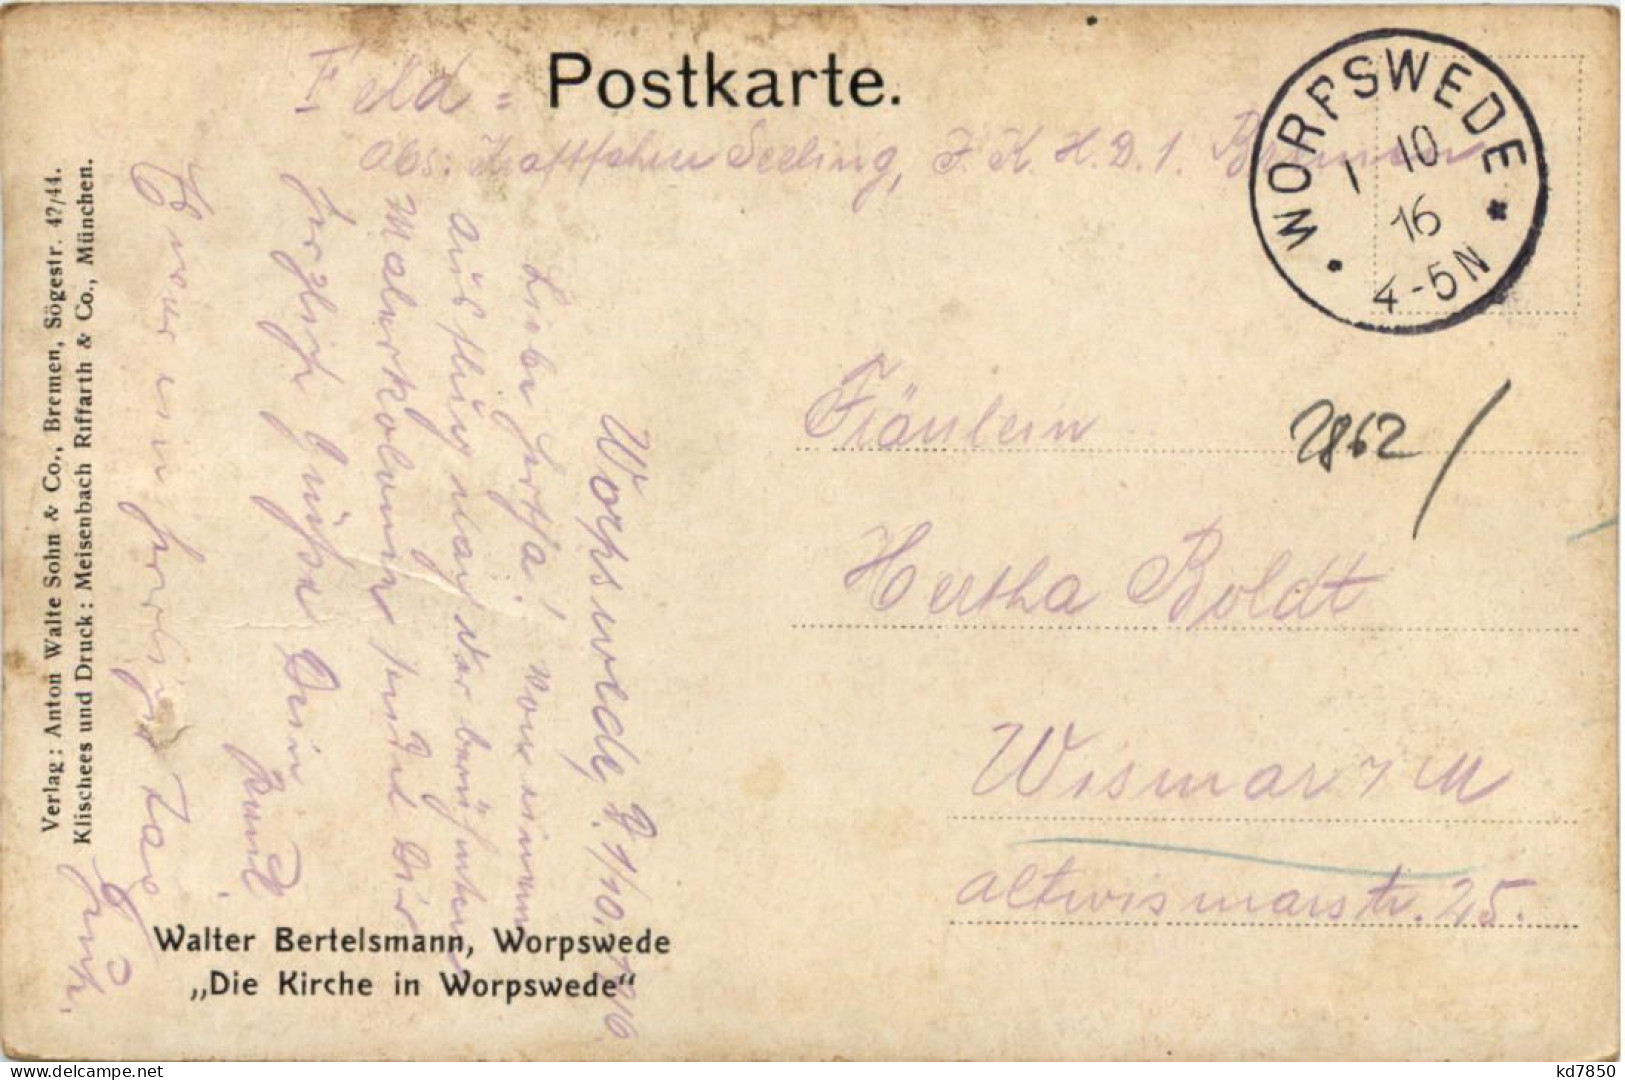 Postkarte.
Feld =
Abs.: Kraftfahrer Seeling, J. K. K. D. 1. Bremen
WORPSWEDE
1 10
16
4-5N
Fräulein
2862 /
Hertha Boldt
Wismar i M
Altwismarstr. 25.
Worpswede, d. 1/10. 1916
Liebe Hertha! Von einem
Ausflug nach der berühmten
Malerkolonie sendet Dir
herzliche Grüße Dein
Es war ein herrlicher Tag
Walter Bertelsmann, Worpswede
„Die Kirche in Worpswede“
Verlag: Anton Walte Sohn & Co., Bremen, Sögestr. 42/44.
Klischees und Druck: Meisenbach Riffarth & Co., München.
kd7850